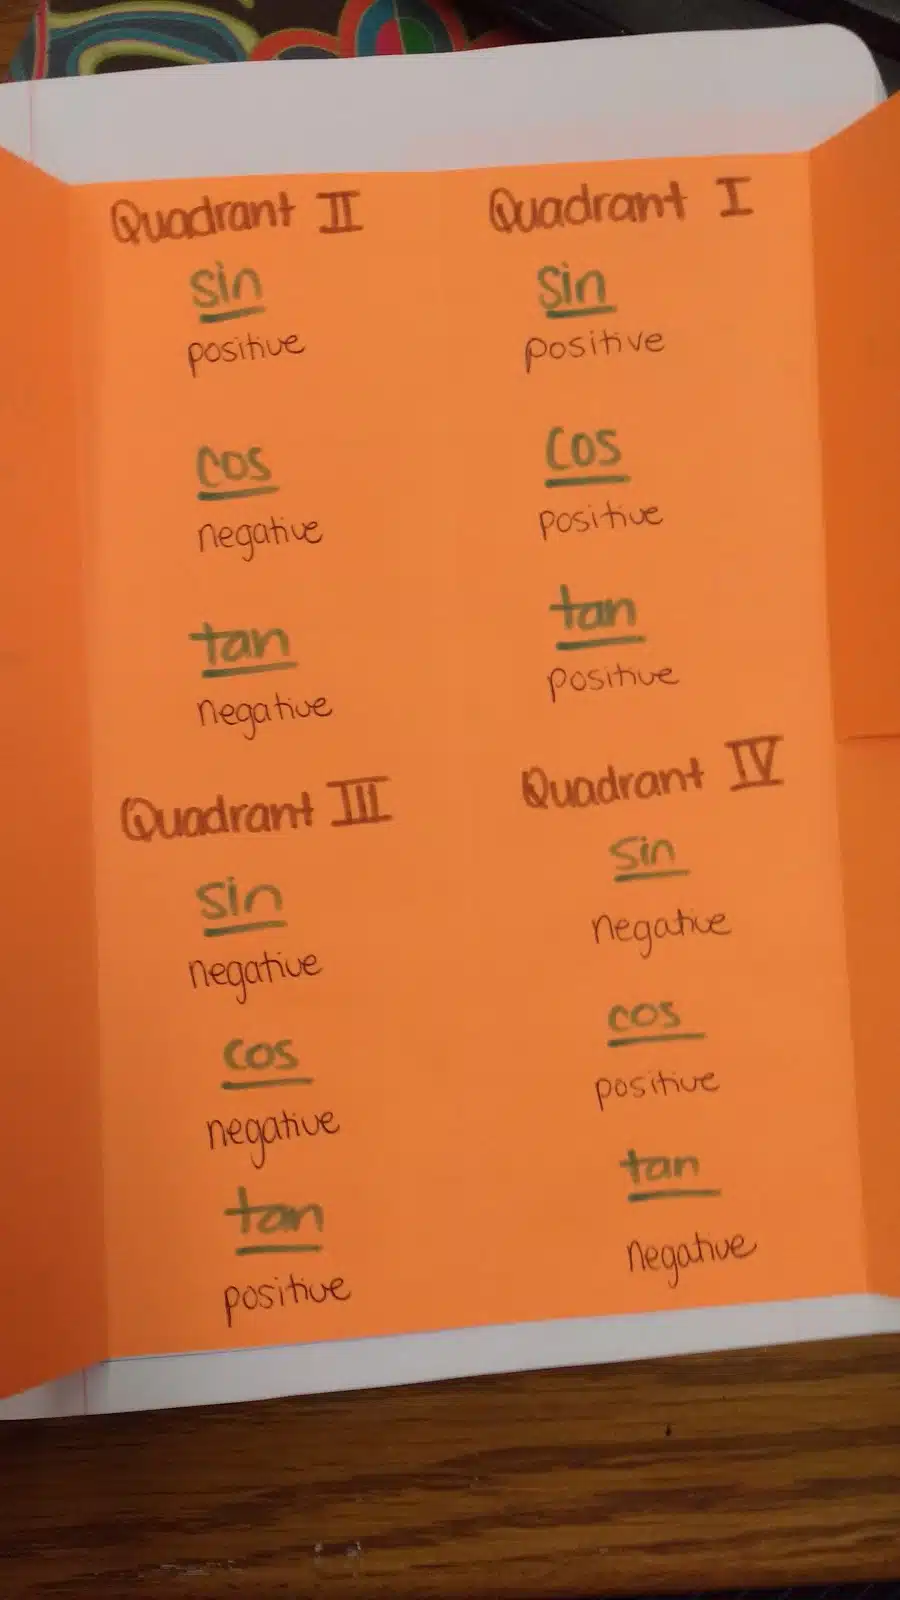 Quadrant II
sin
positive
cos
negative
tan
negative
Quadrant I
sin
positive
cos
positive
tan
positive
Quadrant III
sin
negative
cos
negative
tan
positive
Quadrant IV
sin
negative
cos
positive
tan
negative